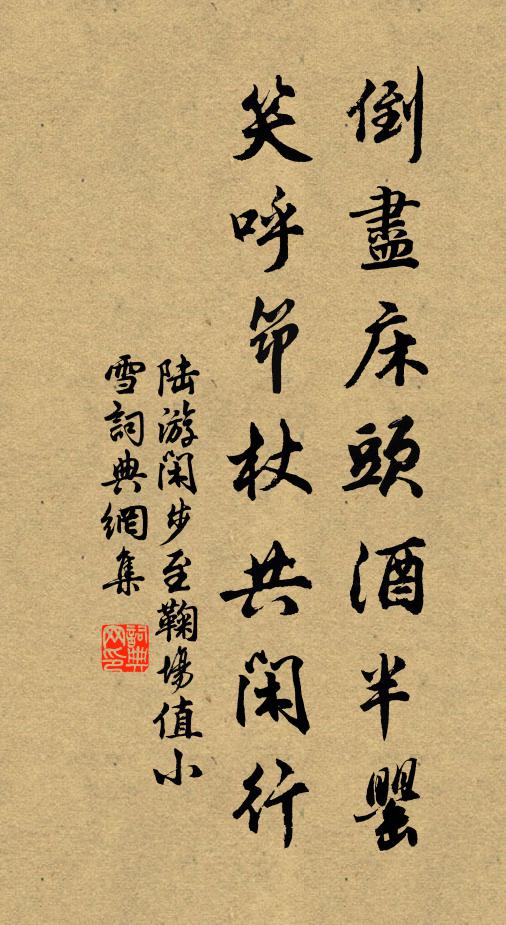 倒盡床頭酒半罌
笑呼笻杖共閑行
陆游閑步至鞠場值小
雪詞典網集
詞典
网印